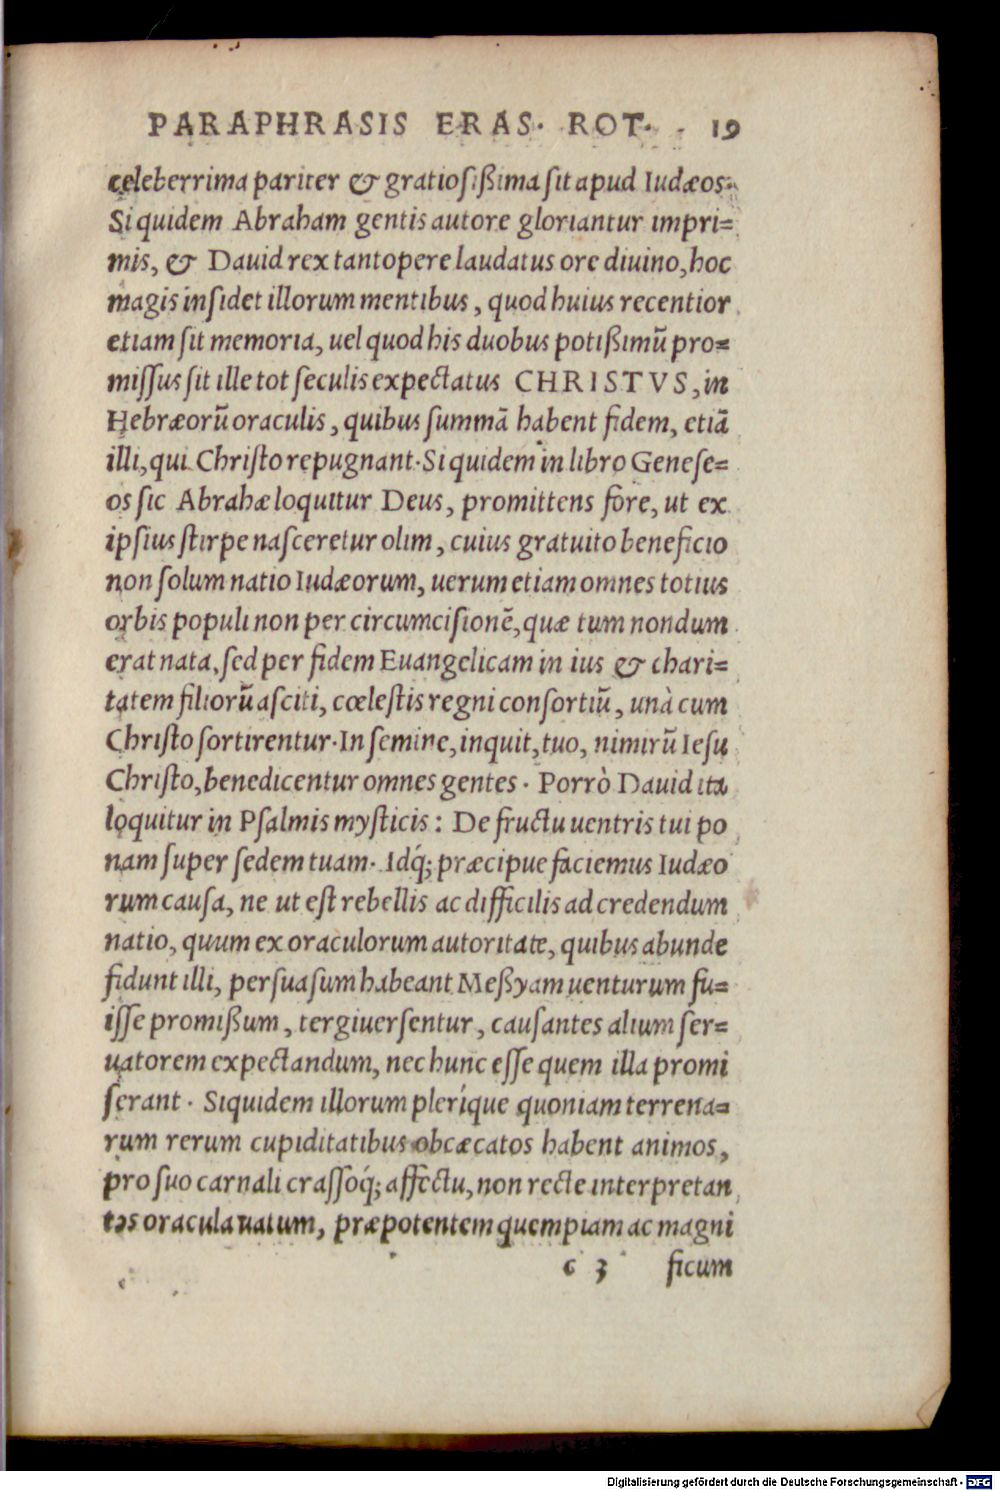 PARAPHRASIS ERAS. ROT. 19
celeberrima pariter & gratiosißima sit apud Iudæos.
Siquidem Abraham gentis autore gloriantur impri=
mis, & Dauid rex tantopere laudatus ore diuino, hoc
magis insidet illorum mentibus, quod huius recentior
etiam sit memoria, uel quod his duobus potißimũ pro=
missus sit ille tot seculis expectatus CHRISTVS, in
Hebræorũ oraculis, quibus summã habent fidem, etiã
illi, qui Christo repugnant. Siquidem in libro Genese=
os sic Abrahæ loquitur Deus, promittens fore, ut ex
ipsius stirpe nasceretur olim, cuius gratuito beneficio
non solum natio Iudæorum, uerum etiam omnes totius
orbis populi non per circumcisionẽ, quæ tum nondum
erat nata, sed per fidem Euangelicam in ius & chari=
tatem filiorũ asciti, cœlestis regni consortiũ, unà cum
Christo sortirentur. In semine, inquit, tuo, nimirũ Iesu
Christo, benedicentur omnes gentes. Porrò Dauid ita
loquitur in Psalmis mysticis: De fructu uentris tui po
nam super sedem tuam. Idq́; præcipue faciemus Iudæo
rum causa, ne ut est rebellis ac difficilis ad credendum
natio, quum ex oraculorum autoritate, quibus abunde
fidunt illi, persuasum habeant Meßyam uenturum fu=
isse promißum, tergiuersentur, causantes alium ser=
uatorem expectandum, nec hunc esse quem illa promi
serant. Siquidem illorum pleríque quoniam terrena=
rum rerum cupiditatibus obcæcatos habent animos,
pro suo carnali crassoq́; affectu, non recte interpretan
tes oracula uatum, præpotentem quempiam ac magni
c 3 ficum
Digitalisierung gefördert durch die Deutsche Forschungsgemeinschaft - DFG